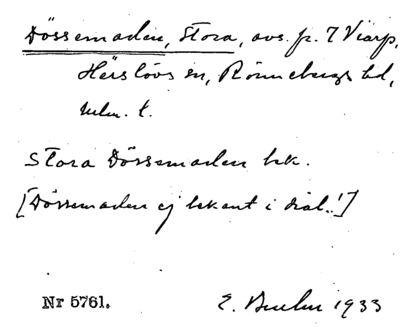 Dössemaden, Stora, avs. fr. 7 Viarp,
Härslövs sn, Rönnebergs hd,
Mlm. l.
Stora Dössemaden bek.
[Dössemaden ej bekant i dial.!]
Nr 5761. E. 1933